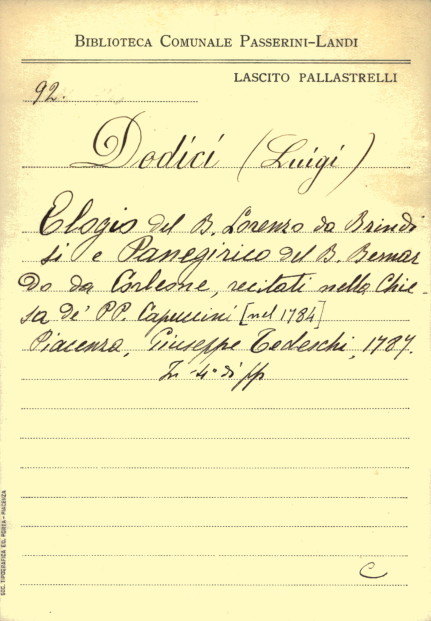 BIBLIOTECA COMUNALE PASSERINI-LANDI
LASCITO PALLASTRELLI
92.
Dodici (Luigi)
Elogio del B. Lorenzo da Brindi
si e Panegirico del B. Bernar
do da Corleone, recitati nella Chie-
sa de' PP. Capuccini [nel 1784]
Piacenza, Giuseppe Tedeschi, 1784.
In-4° di pp
C
SOC. TIPOGRAFICA ED. PORTA - PIACENZA